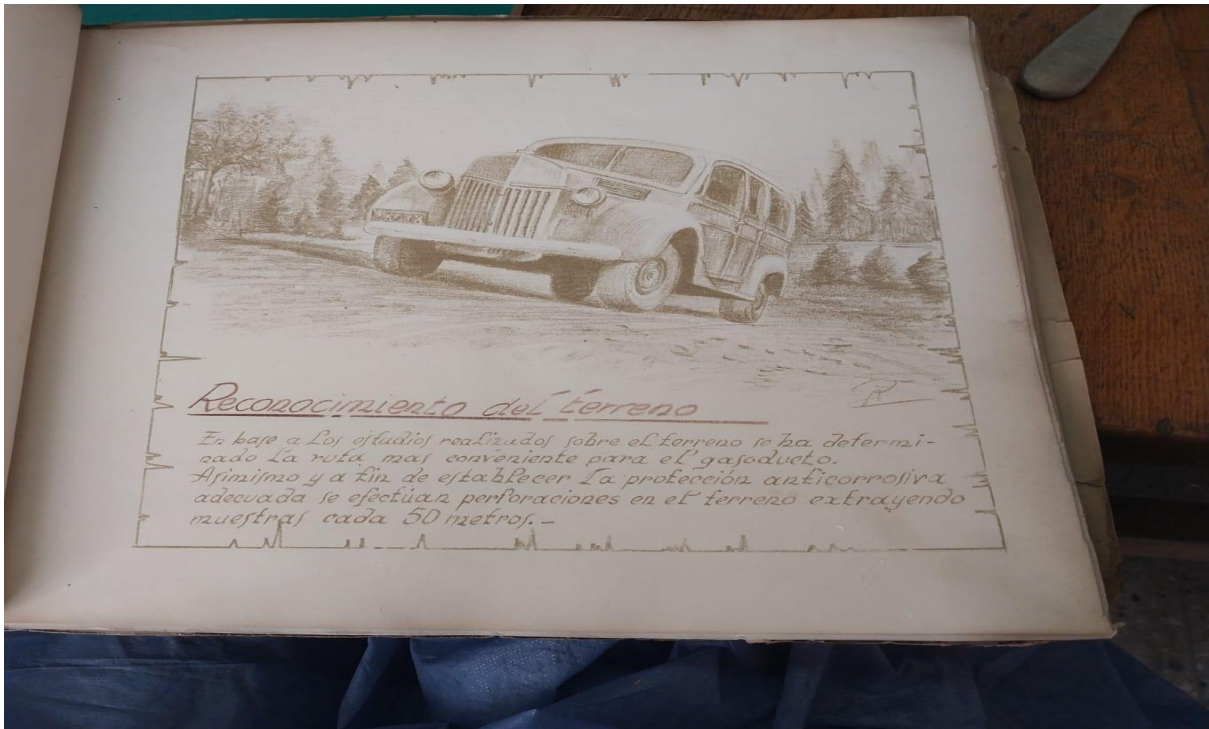 Reconocimiento del terreno
En base a los estudios realizados sobre el terreno se ha determi-
nado la ruta mas conveniente para el gasoducto.
Asimismo y a fin de establecer la protección anticorrosiva
adecuada se efectúan perforaciones en el terreno extrayendo
muestras cada 50 metros.-